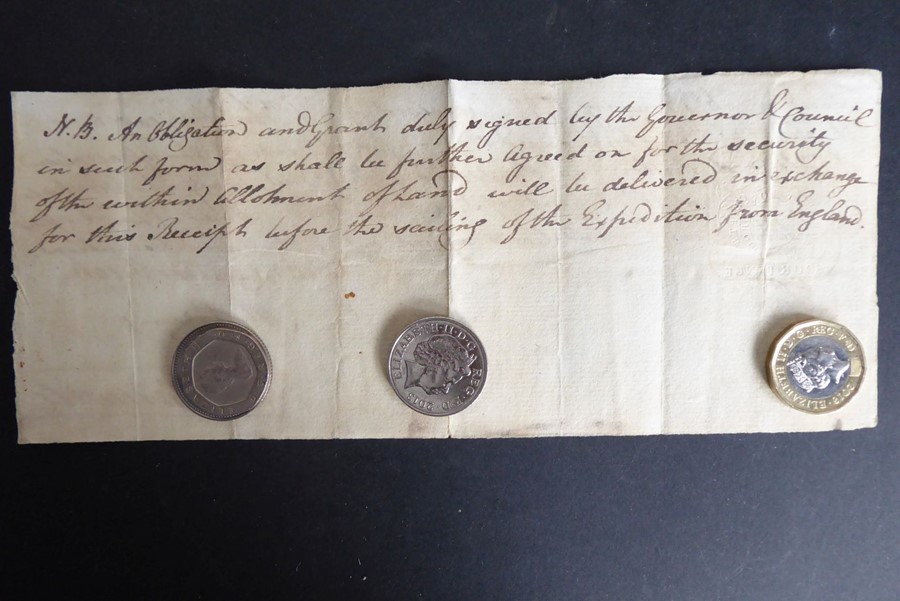 N.B. An Obligation and Grant duly signed by the Governor & Council
in such form as shall be further Agreed on for the security
of the within Allotment of Land will be delivered in exchange
for this Receipt before the sailing of the Expedition from England.
ELIZABETH·II·D·G·REG·F·D·2013
ELIZABETH II·D·G·REG·F·D·